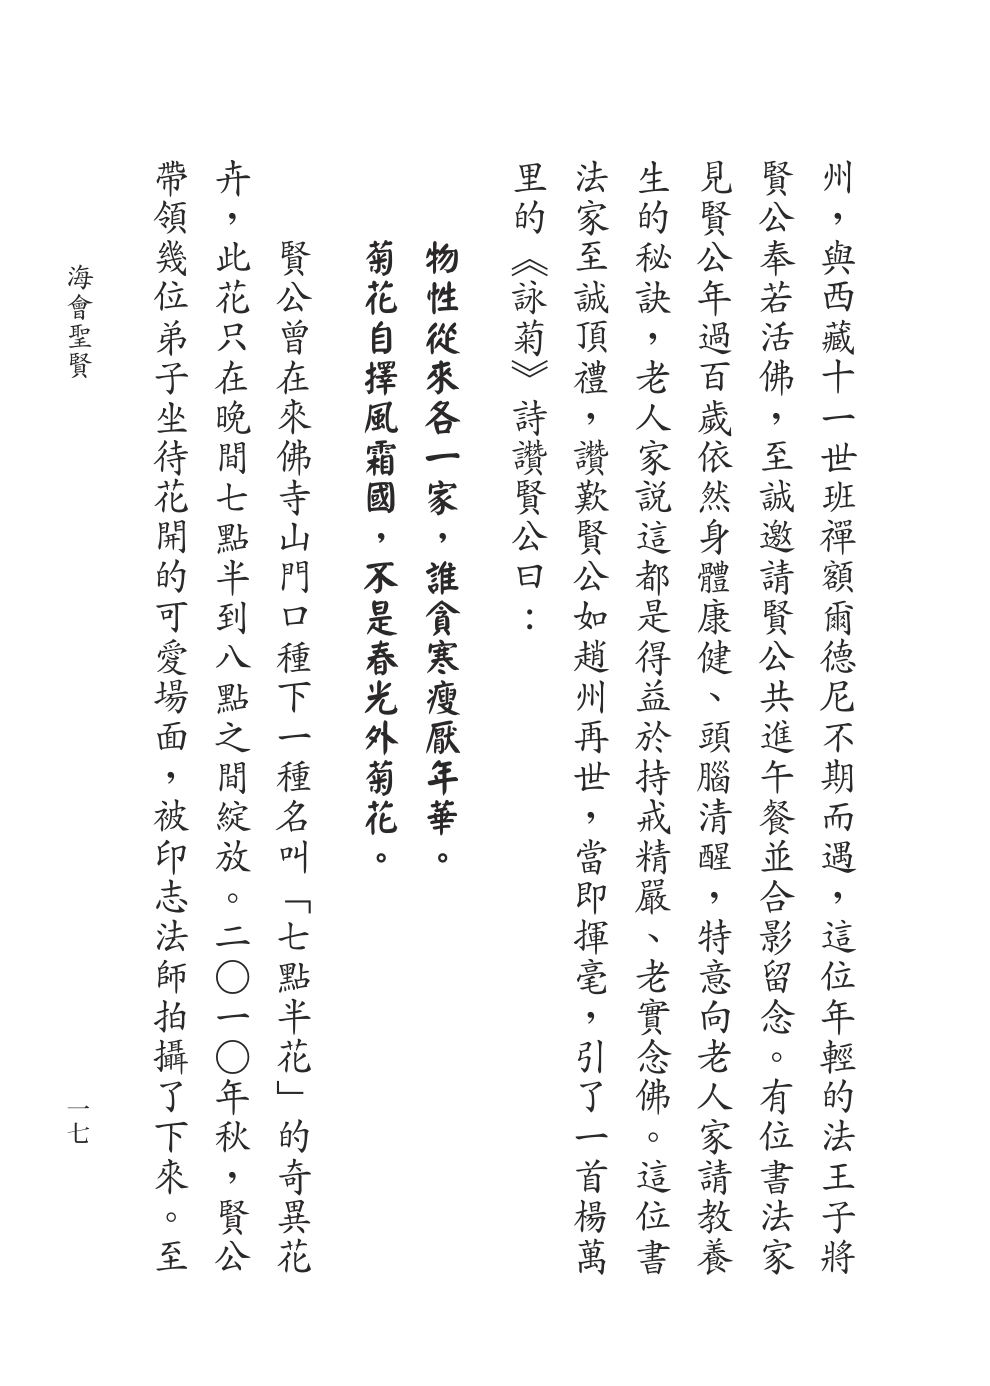 州，與西藏十一世班禪額爾德尼不期而遇，這位年輕的法王子將
賢公奉若活佛，至誠邀請賢公共進午餐並合影留念。有位書法家
見賢公年過百歲依然身體康健、頭腦清醒，特意向老人家請教養
生的秘訣，老人家説這都是得益於持戒精嚴、老實念佛。這位書
法家至誠頂禮，讚歎賢公如趙州再世，當即揮毫，引了一首楊萬
里的《詠菊》詩讚賢公曰：
物性從來各一家，誰貪寒瘦厭年華。
菊花自擇風霜國，不是春光外菊花。
賢公曾在來佛寺山門口種下一種名叫「七點半花」的奇異花
卉，此花只在晚間七點半到八點之間綻放。二〇一〇年秋，賢公
帶領幾位弟子坐待花開的可愛場面，被印志法師拍攝了下來。至
海會聖賢
一七